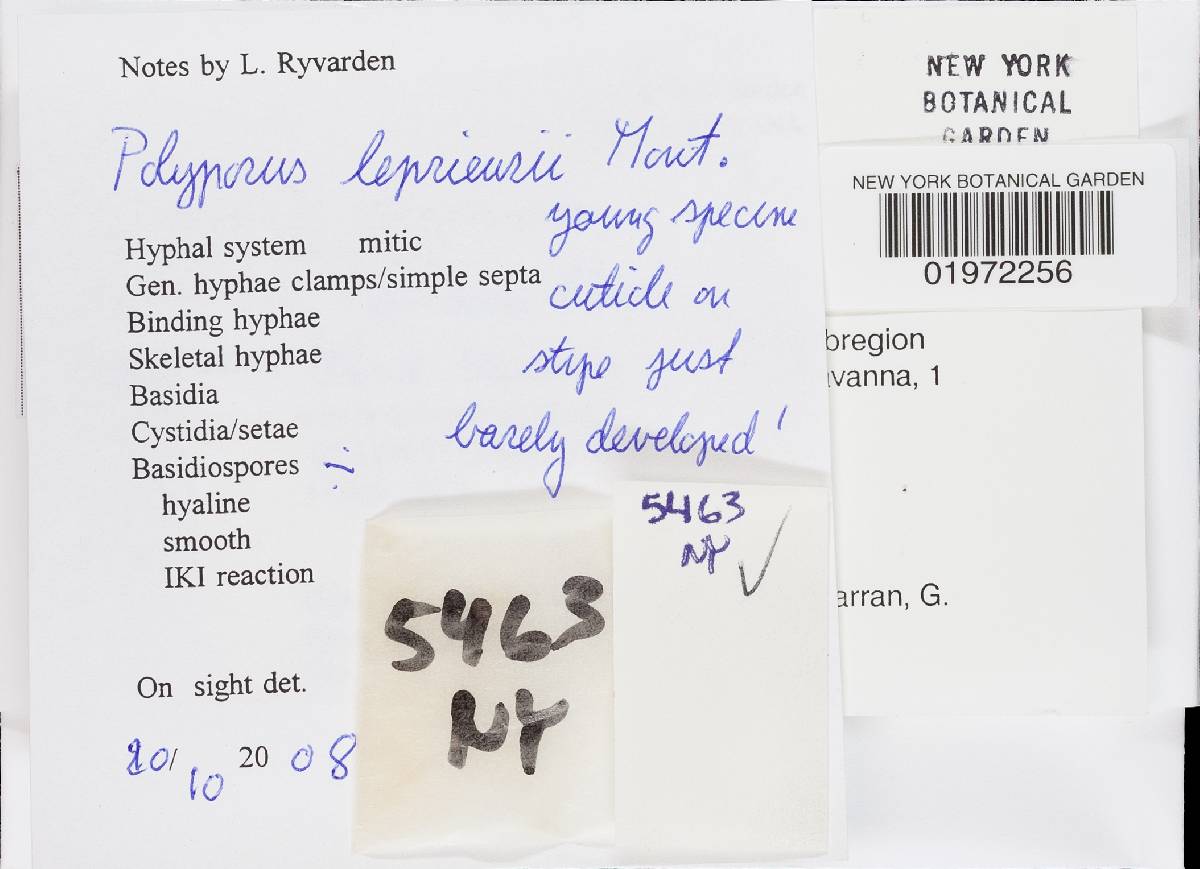 Notes by L. Ryvarden
Polyporus leprieurii Mont.
young specime
cuticle on
stipe just
barely developed!
Hyphal system mitic
Gen. hyphae clamps/simple septa
Binding hyphae
Skeletal hyphae
Basidia
Cystidia/setae
Basidiospores ÷
hyaline
smooth
IKI reaction
On sight det.
20/10 2008
5463
NY
5463
NY
NEW YORK
BOTANICAL
GARDEN
NEW YORK BOTANICAL GARDEN
01972256
bregion
vanna, 1
arran, G.